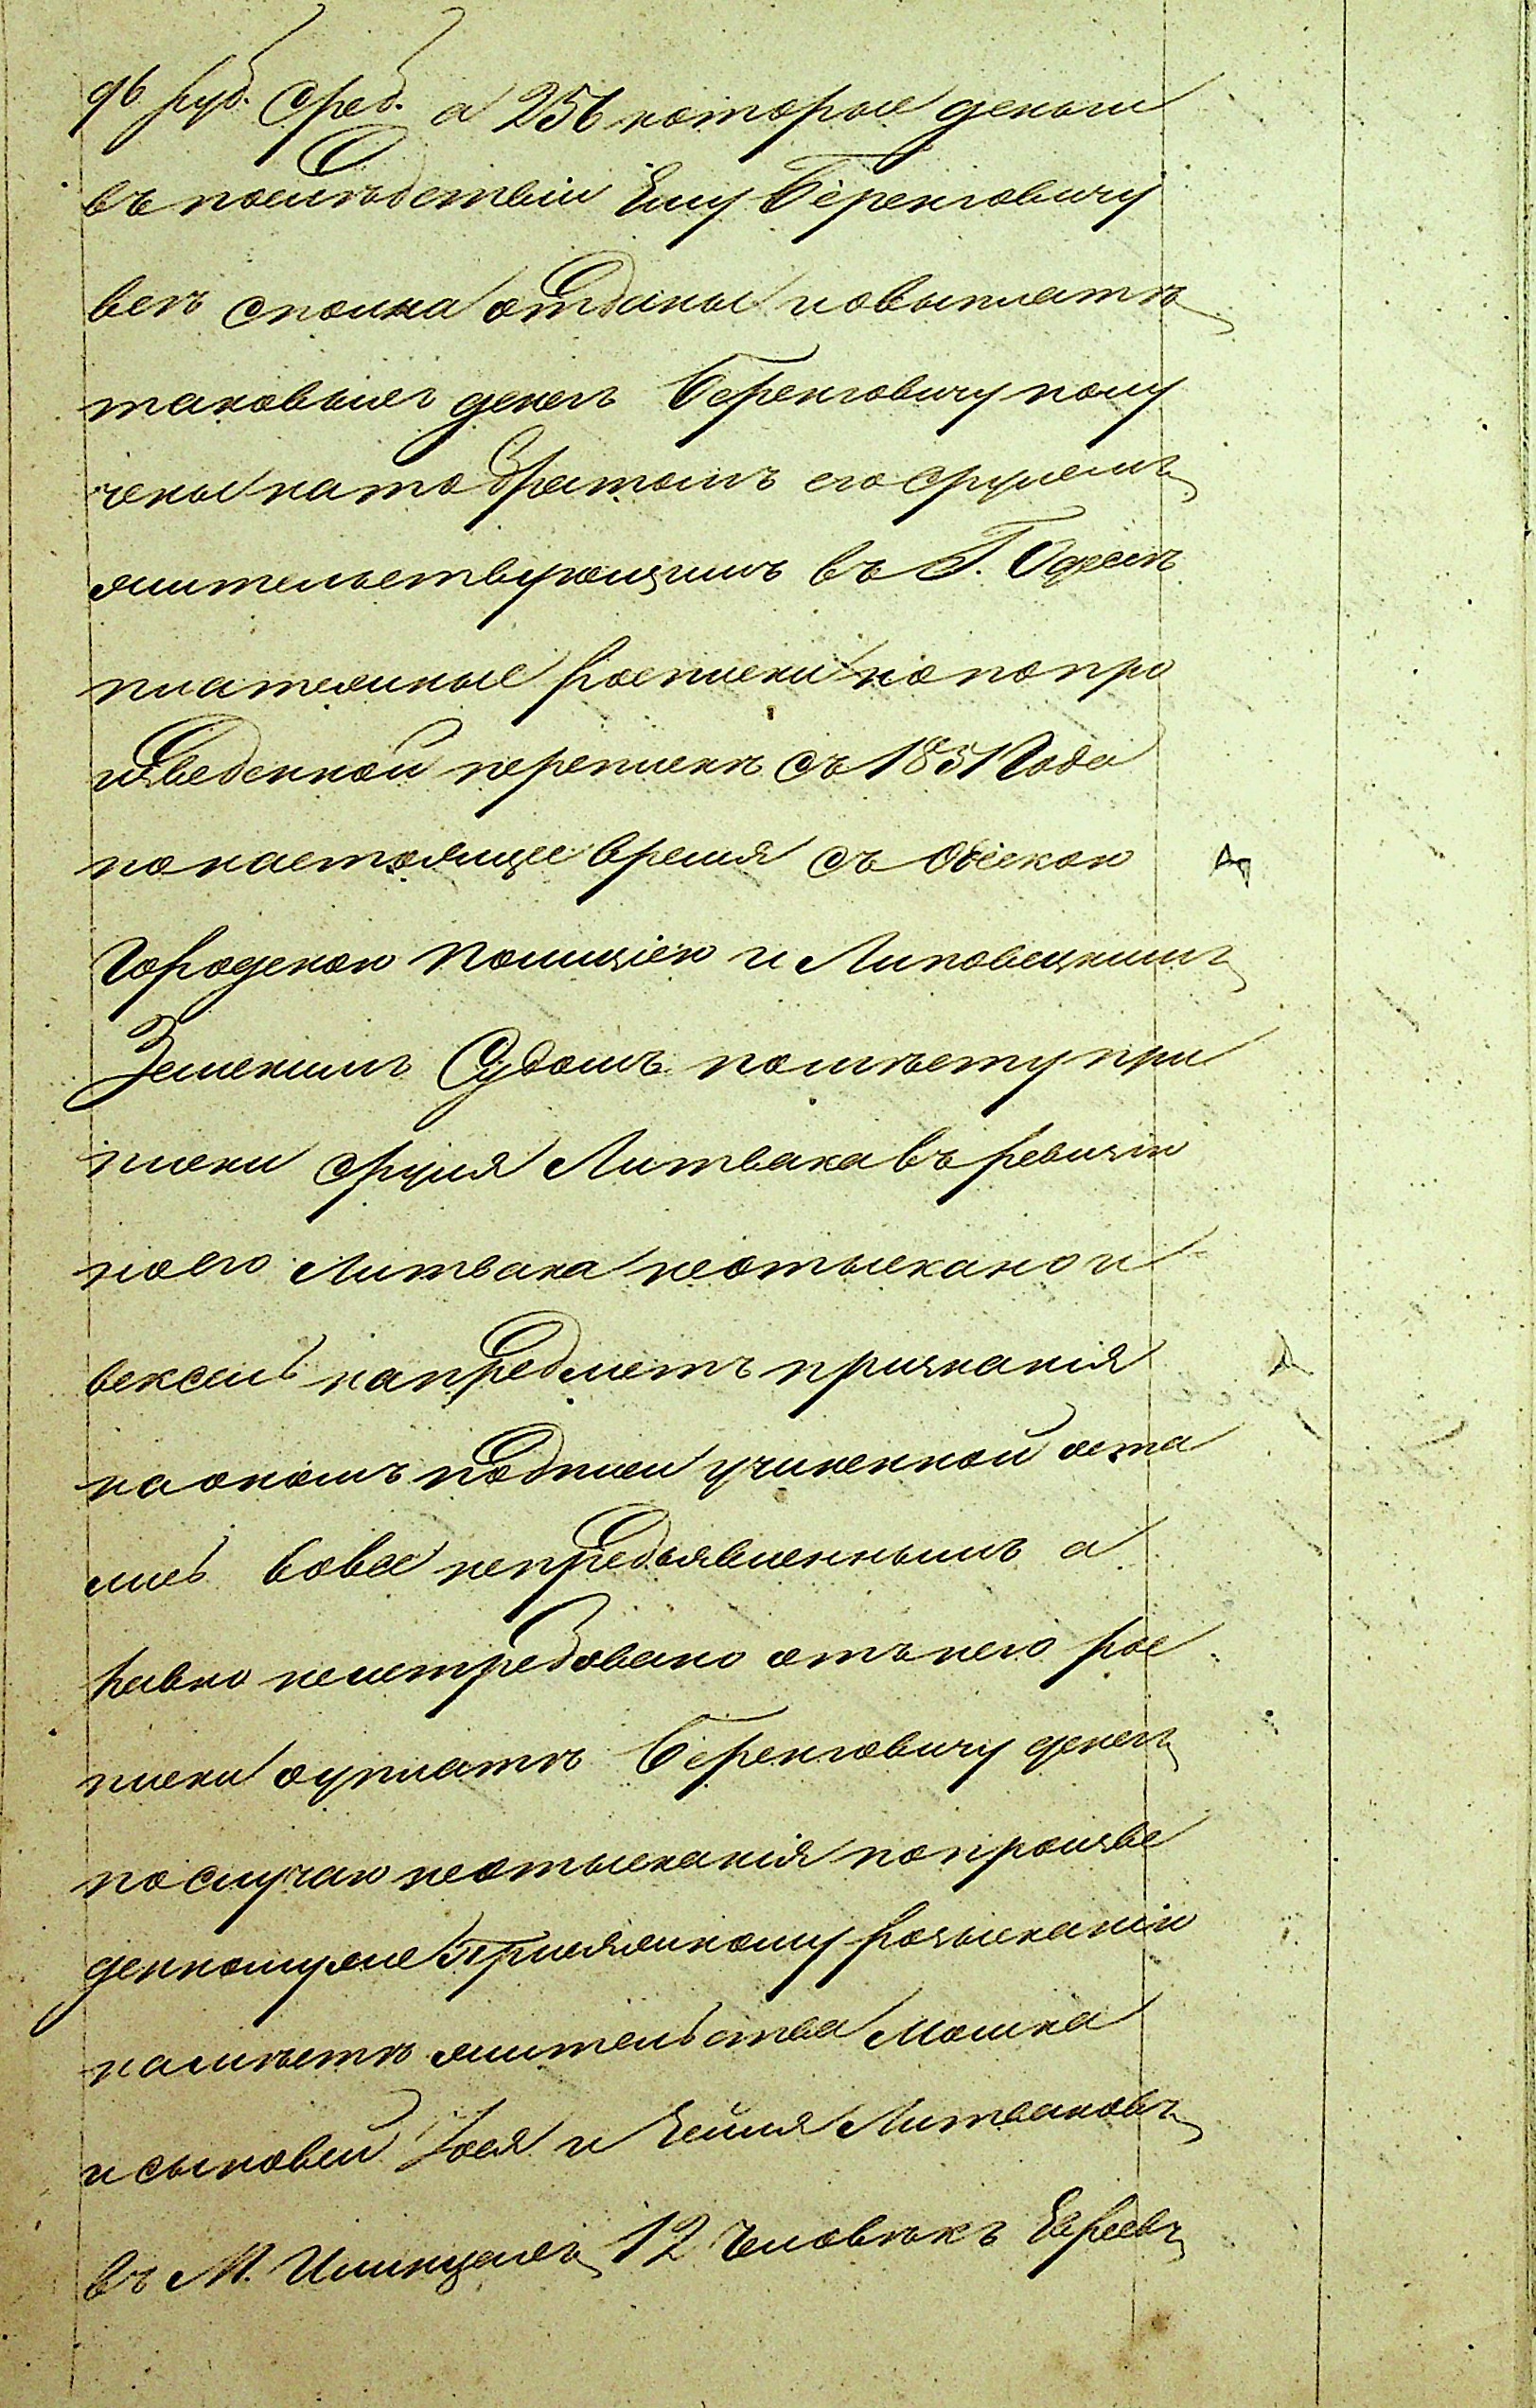 96 руб. среб. а 256 которые деньги
въ последствіи Ему Беренговичу
всѣ сполна отданы и овыплатѣ
таковыхъ денегъ Беренговичу полу
чены на то братомъ его Срулемъ
жительствующимъ въ Г. Одесѣ
платежные росписки но по про
изведенной перепискѣ съ 1851 Года
по настоящее время съ Одескою
Городскою Полиціею и Липовецкимъ
Земскимъ Судомъ помѣсту при
писки Сруля Литвака въ ревизіи
но его Литвака неотыскано и
вексель на предметъ признанія
на ономъ подписи учиненной оста
лись вовсе непредъявленнымъ а
равно неистребовано отъ него рос
писки оуплатѣ Беренговичу денегъ
по случаю неотысканія по произве
денному же присяжному розысканію
на мѣстѣ жительства Мошка
и сыновей Іося и Хейля Литваковъ
въ М. Илинцахъ 12 человѣкъ Евреевъ